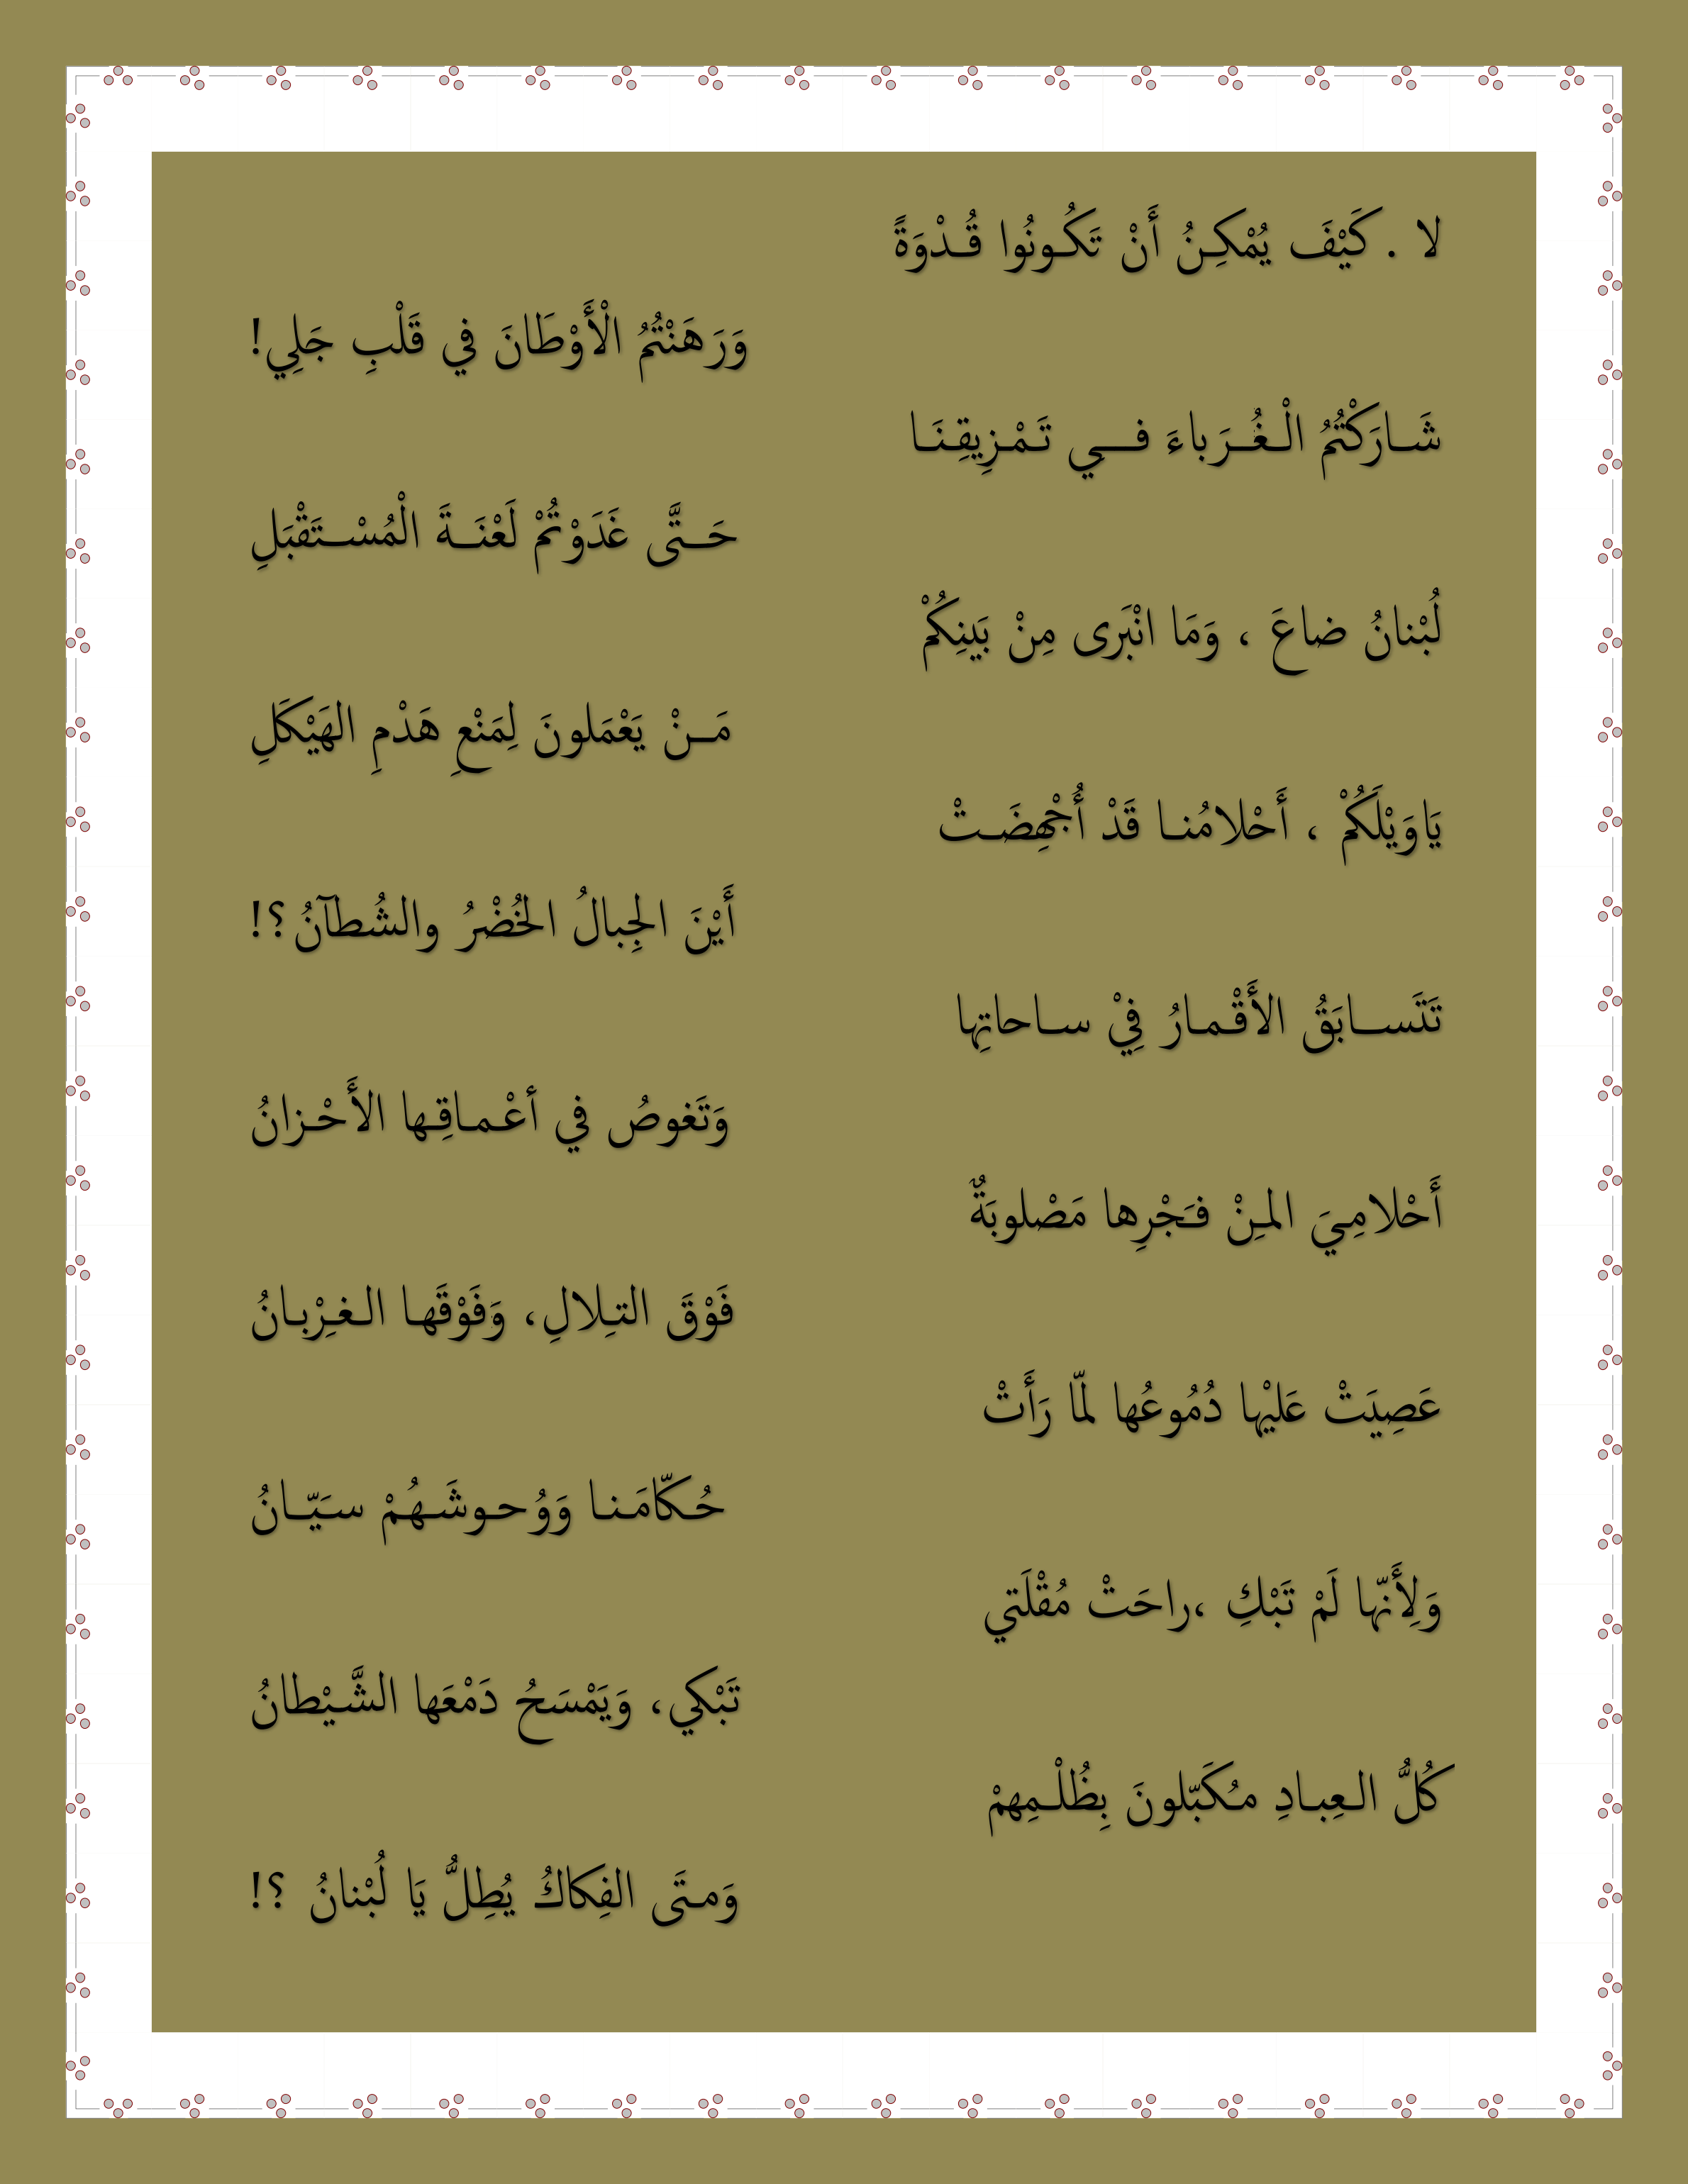 لا . كَيْفَ يُمْكِنُ أَنْ تَكُونُوا قُدْوَةً
وَرَهَنْتُمُ الْأَوْطَانَ في قَلْبِ جَلِي!
شَارَكْتُمُ الْغُرَباءَ فِي تَمْزِيقِنَا
حَتَّى غَدَوْتُمْ لَعْنَةَ الْمُسْتَقْبَلِ
لُبْنانُ ضاعَ ، وَمَا انْبَرى مِنْ بَينِكُمْ
مَنْ يَعْمَلونَ لِمَنْعِ هَدْمِ الهَيْكَلِ
يَاوَيْلَكُمْ ، أَحْلامُنا قَدْ أُجْهِضَتْ
أَيْنَ الجِبالُ الخُضْرُ والشُطآنُ؟!
تَتَسابَقُ الأَقْمارُ فِيْ ساحاتِها
وَتَغوصُ في أعْماقِها الأَحْزانُ
أَحْلامِيَ المِنْ فَجْرِها مَصْلوبَةٌ
فَوْقَ التِلالِ، وَفَوْقَها الغِرْبانُ
عَصِيَتْ عَليْها دُمُوعُها لمّا رَأَتْ
حُكّامَنا وَوُحوشَهُمْ سيَّانُ
وَلِأَنّها لَمْ تَبْكِ ،راحَتْ مُقْلَتي
تَبْكي، وَيَمْسَحُ دَمْعَها الشَّيْطانُ
كُلُّ العِبادِ مُكَبّلونَ بِظُلْمِهِمْ
وَمتَى الفِكاكُ يُطِلُّ يَا لُبْنانُ ؟!